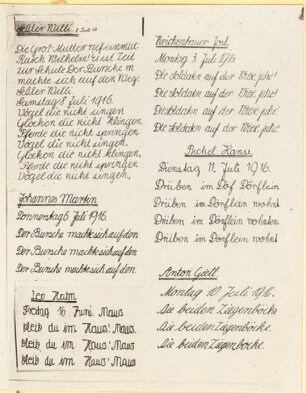 Adler Willi. 8. Juli 16
Die Gros-Mutter rief einmal:
Rasch Wilhelm! Es ist Zeit
zur Schule. Der Bursche m
machte sich auf den Weg.
Adler Willi.
Samstag 8 Juli 1916.
Vögel die nicht singen
Glocken die nicht klingen,
Pferde die nicht springen
Vögel die nicht singen.
Glocken die nicht klingen,
Pferde die nicht springen
Vögel die nicht singen,
Johannes Martin
Donnerstag 6 Juli 1916.
Der Bursche machte sich auf den
Der Bursche machte sich auf den
Der Bursche machte sich auf den
Leo Hahn
Freitag 16 Juni. Maus
bleib du im Haus! Maus.
bleib du im Haus! Maus
bleib du im Haus! Maus.
Montag 3. Juli 1916.
Die Soldaten auf der
Die Soldaten auf der
Die Soldaten auf der
Die Soldaten auf der
Pechel Hansl
Dienstag 11. Juli 1916.
Drüben im Dörflein
Drüben im Dörflein wohnt
Drüben im Dörflein wohnten
Drüben im Dörflein wohnt
Anton
Montag 10 Juli 1916.
Die beiden Ziegenböcke
Die beiden Ziegenböcke
Die beiden Ziegenböcke.